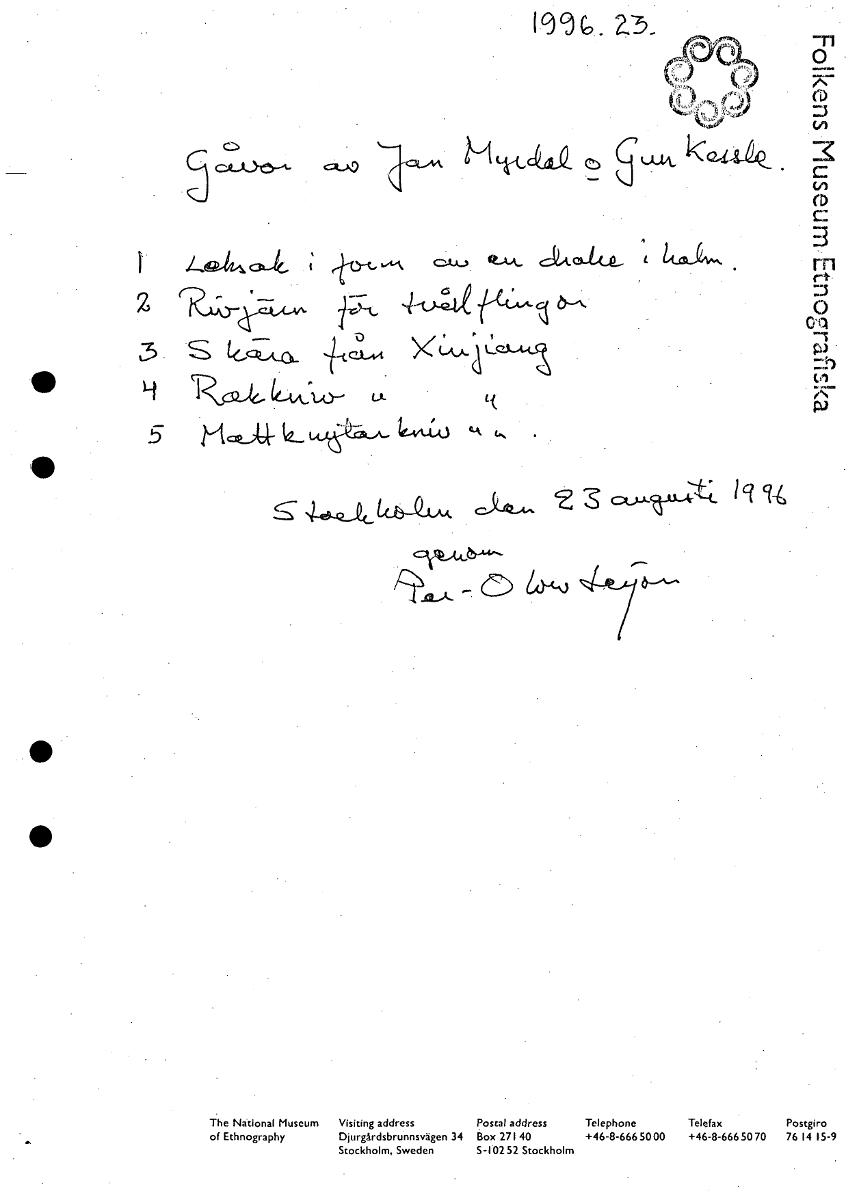 1996.23.
Folkens Museum Etnografiska
Gåvor av Jan Myrdal o Gun Kessle.
1 Leksak i form av en drake i halm.
2 Rivjärn för tvålflingor
3 Skära från Xinjiang
4 Rakkniv " "
5 Mattknytarkniv " " .
Stockholm den 23 augusti 1996
genom
Per-Olow Leijon
The National Museum
of Ethnography
Visiting address
Djurgårdsbrunnsvägen 34
Stockholm, Sweden
Postal address
Box 271 40
S-102 52 Stockholm
Telephone
+46-8-666 50 00
Telefax
+46-8-666 50 70
Postgiro
76 14 15-9